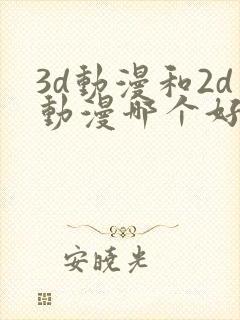 3d動漫和2d
動漫哪个好
安晓光